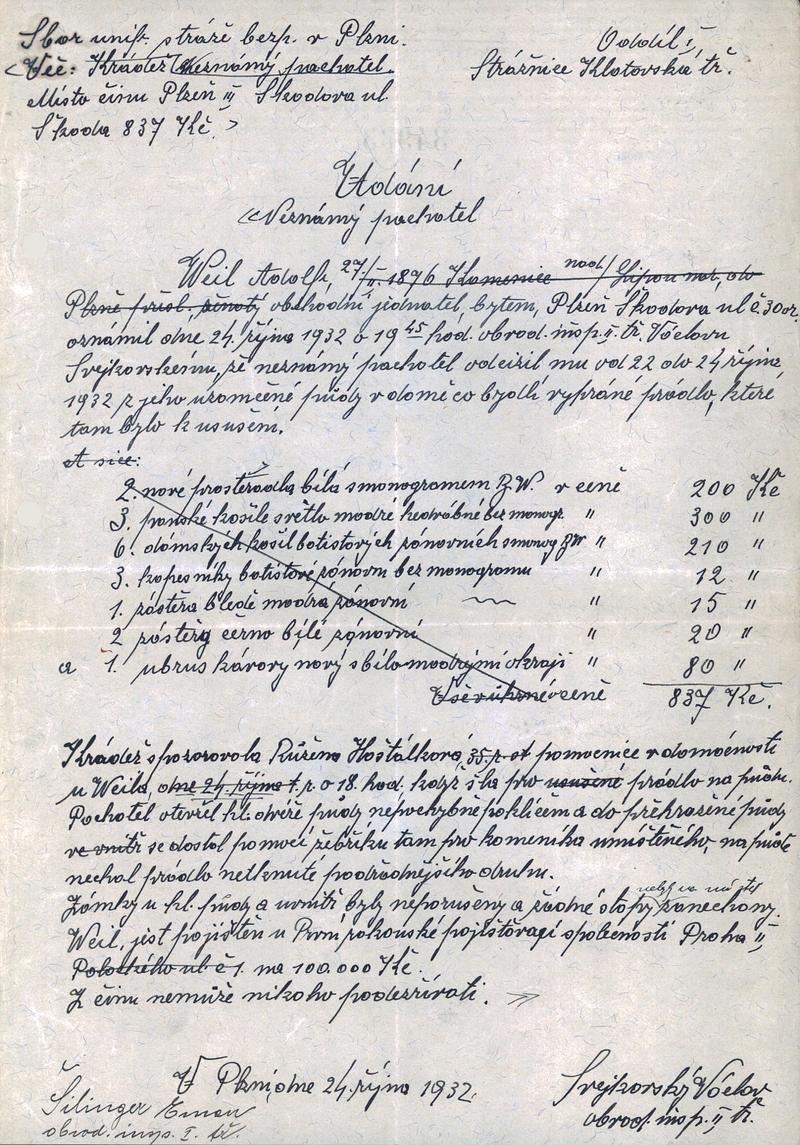 Sbor unif. stráže bezp. v Plzni.
Oddíl I,
Věc: Krádež neznámý pachatel.
Strážnice Klatovská tř.
Místo činu Plzeň III Škodova ul.
Škoda 837 Kč.
Udání
Neznámý pachatel
Weil Adolf, 27/II. 1896 Kamenice nad/Lipou nar., do
Plzně přísl. obchodní jednatel, bytem, Plzeň Škodova ul č. 30
oznámil dne 24. října 1932 o 19 45 hod. obvod. insp. II. tř. Václavu
Svejkovskému, že neznámý pachatel odcizil mu od 22 do 24 října,
1932 z jeho uzamčené půdy v domě co bydlí vyprané prádlo, které
tam bylo k usušení.
A sice:
2. nové prostěradla bílá s monogramem B.W. v ceně 200 Kč
3. panské košile světlo modré bez monogr. " 300 "
6. dámských košil batistových zánovních s monog BW " 210 "
3. kapesníky batistové zánovní bez monogramu " 12 "
1. zástěra bledě modrá zánovní " 15 "
2 zástěry černo bílé zánovní " 20 "
a 1. ubrus kávový nový s bílo modrými okraji " 80 "
Vše v úhrné v ceně 837 Kč.
Krádež spozorovala Růžena Hošťálková, 35. r. st pomocnice v domácnosti
u Weila, dne 24. října t. r. o 18. hod. když šla pro usušené prádlo na půdu.
Pachatel otevřel hl. dvéře půdy nepochybně paklíčem a do přehražené půdy
ve vnitř se dostal pomocí žebříku tam pro kominíka umístěného, na půdě
nechal prádlo netknuté podřadnějšího druhu.
Zámky u hl. půdy a uvnitř byly neporušeny a žádné stopy zanechány.
Weil, jest pojištěn u První rakouské pojišťovací společnosti Praha II,
ul č 1. na 100.000 Kč.
Z činu nemůže nikoho podezřívati.
V Plzni, dne 24. října 1932.
Svejkovský Václav
obvod. insp. II. tř.
Šilinger Eman
obvod. insp. I. tř.